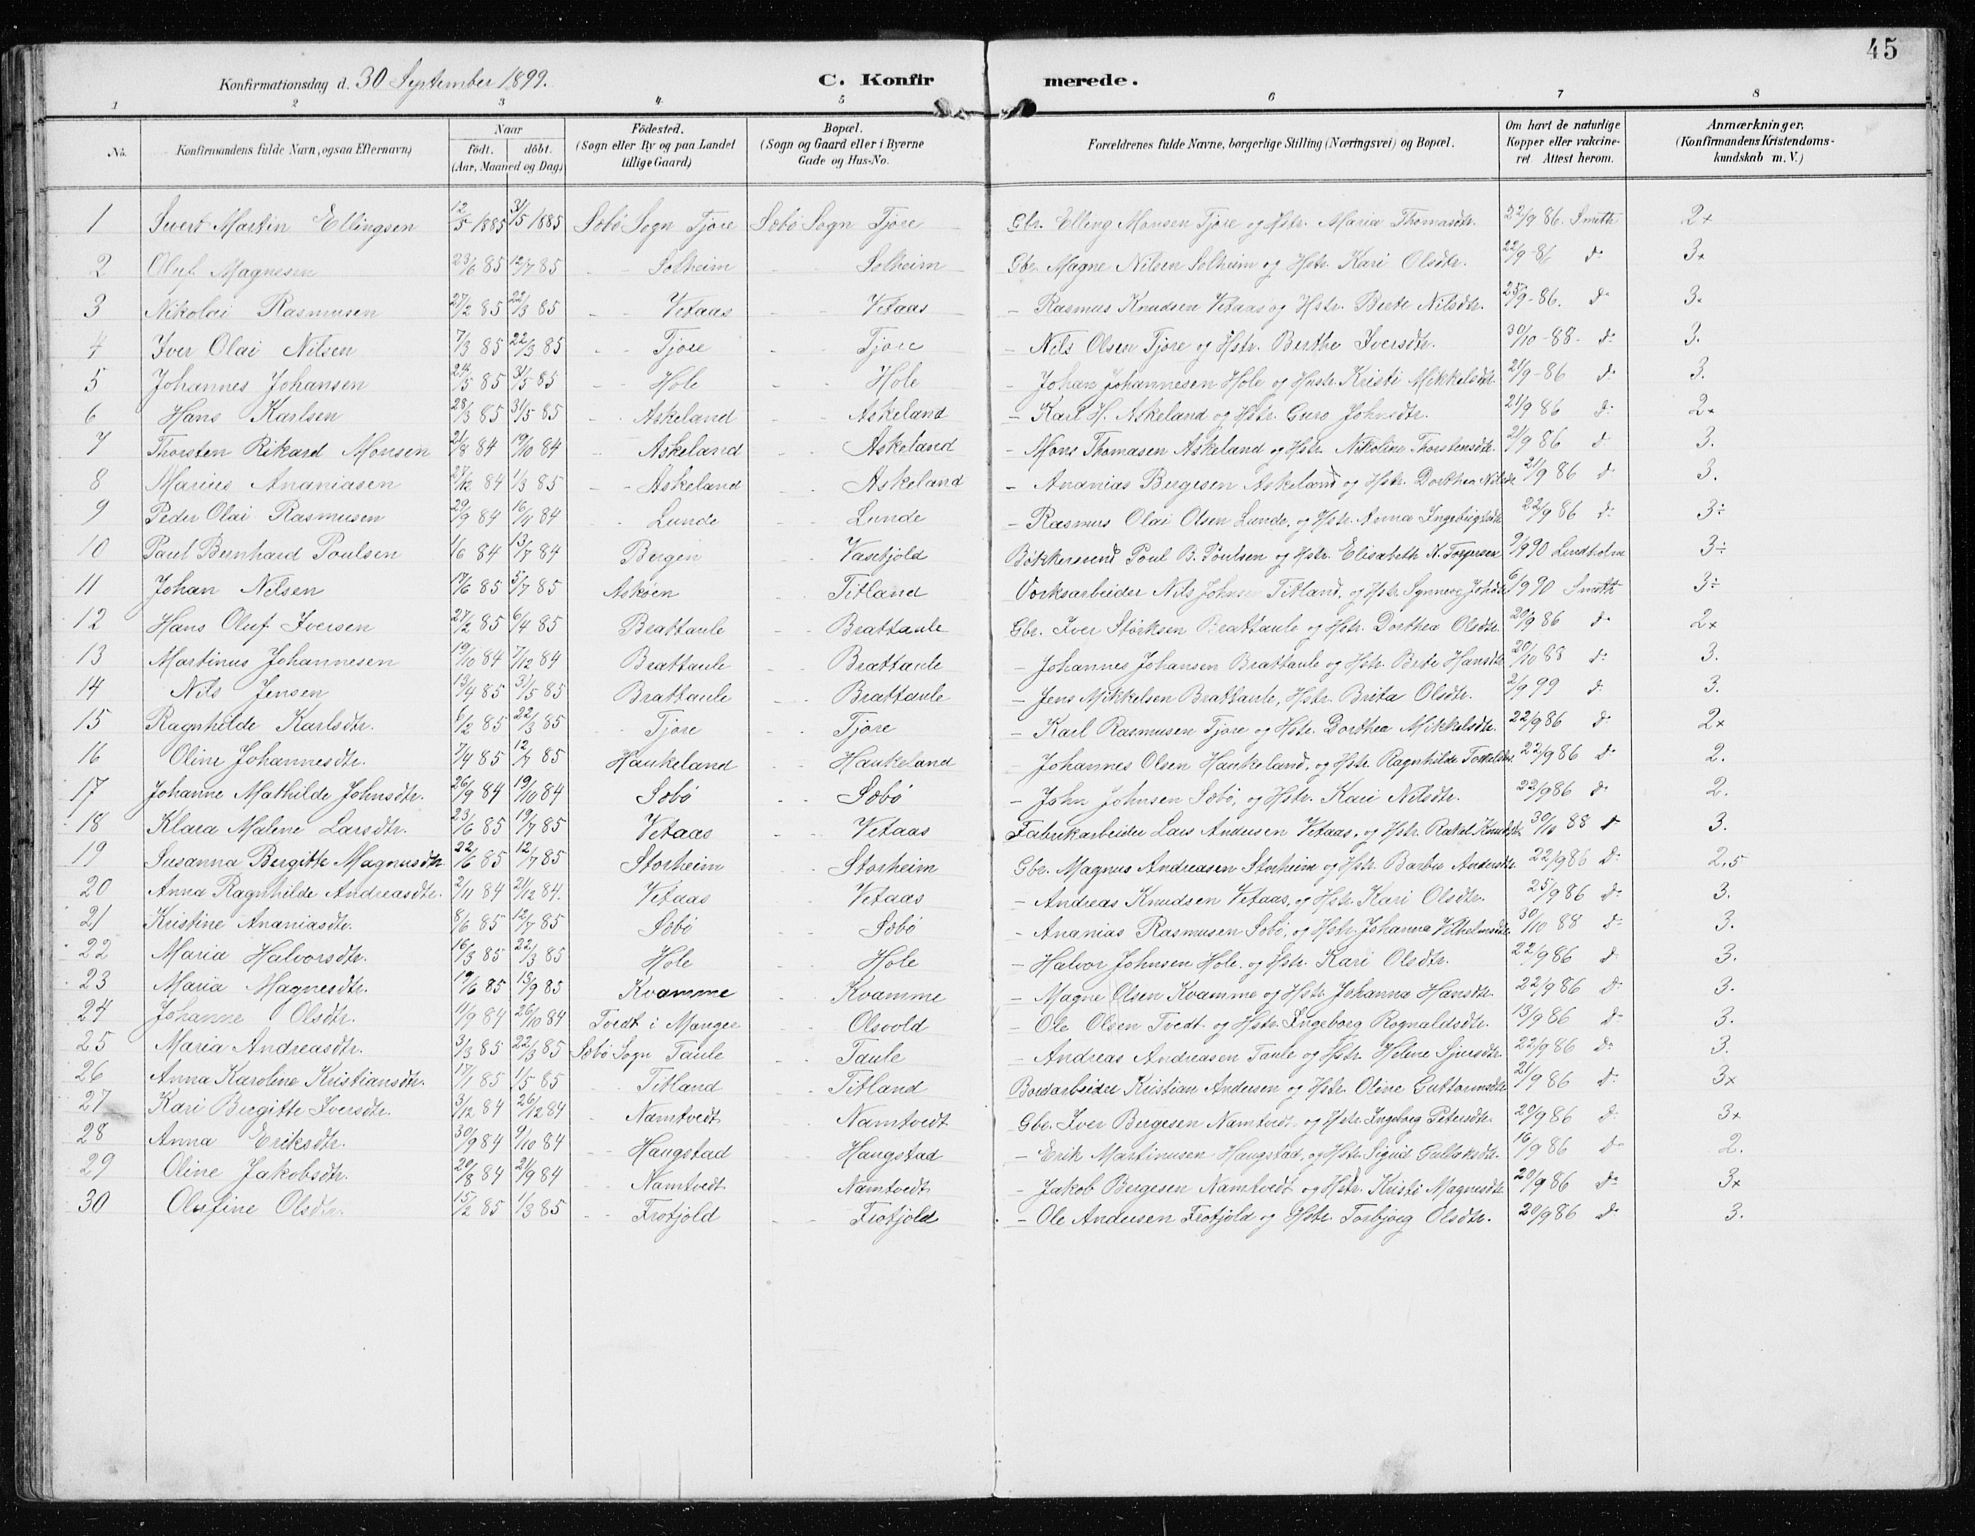 45
Konfirmationsdag d. 30 September 1899. C. Konfirmerede.
1 2 3 4 5 6 7 8
No. Konfirmandens fulde Navn, ogsaa Efternavn) Naar Födt. döbt. (Aar, Maaned og Dag) Födested. (Sogn eller By og paa Landet tillige Gaard) Bopæl. (Sogn og Gaard eller i Byerne Gade og Hus-No. Forældrenes fulde Navne, borgerlige Stilling (Næringsvei) og Bopæl. Om havt de naturlige Kopper eller vakcineret Attest herom. Anmærkninger. (Konfirmandens Kristendomskundskab m. V.)
1 Sivert Martin Ellingsen 12/5 1885 31/5 1885 Sæbö Sogn Tjore Sæbö Sogn Tjore Gbr. Elling Monsen Tjore og Hstr. Maria Thomasdtr. 22/9 86. Smith 2×
2 Oluf Magnesen 23/6 85 12/7 85 - - Solheim - - Solheim Gbr. Magne Nilsen Solheim og Hstr. Kari Olsdtr. 22/9-86 do 3×
3 Nikolai Rasmusen 27/2 85 22/3 85 - - Vetaas - - Vetaas - Rasmus Knudsen Vetaas og Hstr. Berte Nilsdtr. 25/9-86. do 3.
4 Iver Olai Nilsen 7/3 85 22/3 85 - - Tjore - - Tjore - Nils Olsen Tjore og Hstr. Berthe Iversdtr. 30/10-88. do 3.
5 Johannes Johansen 24/5 85 31/5 85 - - Hole - - Hole - Johan Johannesen Hole og Hustr. Kristi Mikkelsdtr. 21/9-86 do 3.
6 Hans Karlsen 28/3 85 31/5 85 - - Askeland - - Askeland - Karl H. Askeland og Hstr. Guro Johnsdtr. 21/9 86 do 2×
7 Thorsten Rikard Monsen 21/8 84 19/10 84 - - Askeland - - Askeland - Mons Thomasen Askeland og Hstr. Nikoline Thorstensdtr. 21/9 86 do 3.
8 Marius Ananiasen 27/12 84 1/3 85 - - Askeland - - Askeland - Ananias Bergesen Askeland og Hstr. Dorthea Nilsdtr 21/9 86 do 3.
9 Peder Olai Rasmusen 29/9 84 16/11 84 - - Lunde - - Lunde - Rasmus Olai Olsen Lunde, og Hstr. Anna Ingebrigtsdtr 22/9 86 do 3÷
10 Paul Bernhard Poulsen 1/6 84 13/7 84 Bergen - - Vasefjold Bökkersvend Poul B. Poulsen og Hstr. Elisabeth N. Torgersen 9/9 90 Lindholm 3÷
11 Johan Nilsen 17/6 85 5/7 85 Askøen - - Titland Verksarbeider Nils Johnsen Titland, og Hstr. Synneve Johsdtr 6/9 90 Smith 3÷
12 Hans Oluf Iversen 27/2 85 6/4 85 Brattaule - - Brattaule Gbr. Iver Störksen Brattaule og Hstr. Dorthea Olsdtr. 20/9 86 do 2×
13 Martinus Johannesen 19/10 84 7/12 84 Brattaule - - Brattaule - Johannes Johansen Brattaule og Hstr. Brite Hansdtr. 20/10 88 do 3.
14 Nils Jensen 13/4 85 31/5 85 Brattaule - - Brattaule - Jens Mikkelsen Brattaule, Hstr. Brita Olsdtr. 2/9 99 do 3.
15 Ragnhilde Karlsdtr. 6/2 85 22/3 85 - - Tjore - - Tjore - Karl Rasmusen Tjore og Hstr. Dorthea Mikkelsdtr. 22/9 86 do 2×
16 Oline Johannesdtr. 7/4 85 12/7 85 Haukeland - - Haukeland - Johannes Olsen Haukeland, og Hstr. Ragnhilde Torkelsdtr. 22/9 86 do 2.
17 Johanne Mathilde Johnsdtr. 26/9 84 19/10 84 Sæbö - - Sæbö - John Johnsen Sæbö, og Hstr. Kari Nilsdtr. 22/9 86 do 2.
18 Klara Malene Larsdtr. 23/6 85 19/7 85 Vetaas - - Vetaas Fabrikarbeider Lars Andersen Vetaas, og Hstr. Rakel Knudsdtr. 30/10 88 do 3.
19 Susanna Bergitte Magnusdtr 22/6 85 12/7 85 Storheim - - Storheim Gbr. Magnus Andreasen Storheim og Hstr. Barbra Andersdtr. 22/9 86 do 2,5
20 Anna Ragnhilde Andreasdtr. 2/11 84 21/12 84. Vetaas - - Vetaas - Andreas Knudsen Vetaas, og Hstr. Kari Olsdtr. 25/9 86 do 3.
21 Kristine Ananiasdtr. 8/6 85 12/7 85 Sæbö - - Sæbö - Ananias Rasmusen Sæbö, og Hstr. Johanna Vilhelmsdtr 30/10 88 do 3.
22 Maria Halvorsdtr. 16/3 85 22/3 85 - - Hole - - Hole - Halvor Johnsen Hole. og Hstr. Kari Olsdtr. 22/9 86 do 3.
23 Maria Magnesdtr. 19/6 85 13/9 85 - - Kvamme - - Kvamme - Magne Olsen Kvamme og Hstr. Johanna Hansdtr. 22/9 86 do 3.
24 Johanne Olsdtr. 11/9 84 26/10 84 Tvedt i Manger - - Olsvold - Ole Olsen Tvedt og Hstr. Ingeborg Rognaldsdtr. 13/9 86 do 3.
25 Maria Andreasdtr. 3/3 85 22/3 85 Sæbö Sogn Taule - - Taule - Andreas Andreasen Taule og Hstr. Helene Sjursdtr. 22/9 86 do 3.
26 Anna Karoline Kristiansdtr. 17/1 85 1/5 85 - - Titland - - Titland Bordarbeider Kristian Andersen og Hstr. Oline Guttormsdtr 21/9 86 do 3×
27 Kari Bergitte Iversdtr. 3/12 84 26/12 84 - - Namtvedt - - Namtvedt Gbr. Iver Bergesen Namtvedt og Hstr. Ingeborg Petersdtr. 20/9 86 do 3×
28 Anna Eriksdtr. 30/9 84 9/10 84 - - Haugstad - - Haugstad - Erik Martinusen Haugstad, og Hstr. Sigrid Gullaksdtr. 16/9 86 do 2.
29 Oline Jakobsdtr. 20/8 84 21/9 84 - - Namtvedt - - Namtvedt - Jakob Bergesen Namtvedt og Hstr. Kristi Magnesdtr 20/9 86 do 3×
30 Olefine Olsdtr. 15/2 85 1/3 85 - - Frotjold - - Frotjold - Ole Andersen Frotjold og Hstr. Torbjörg Olsdtr. 20/9 86 do 3.